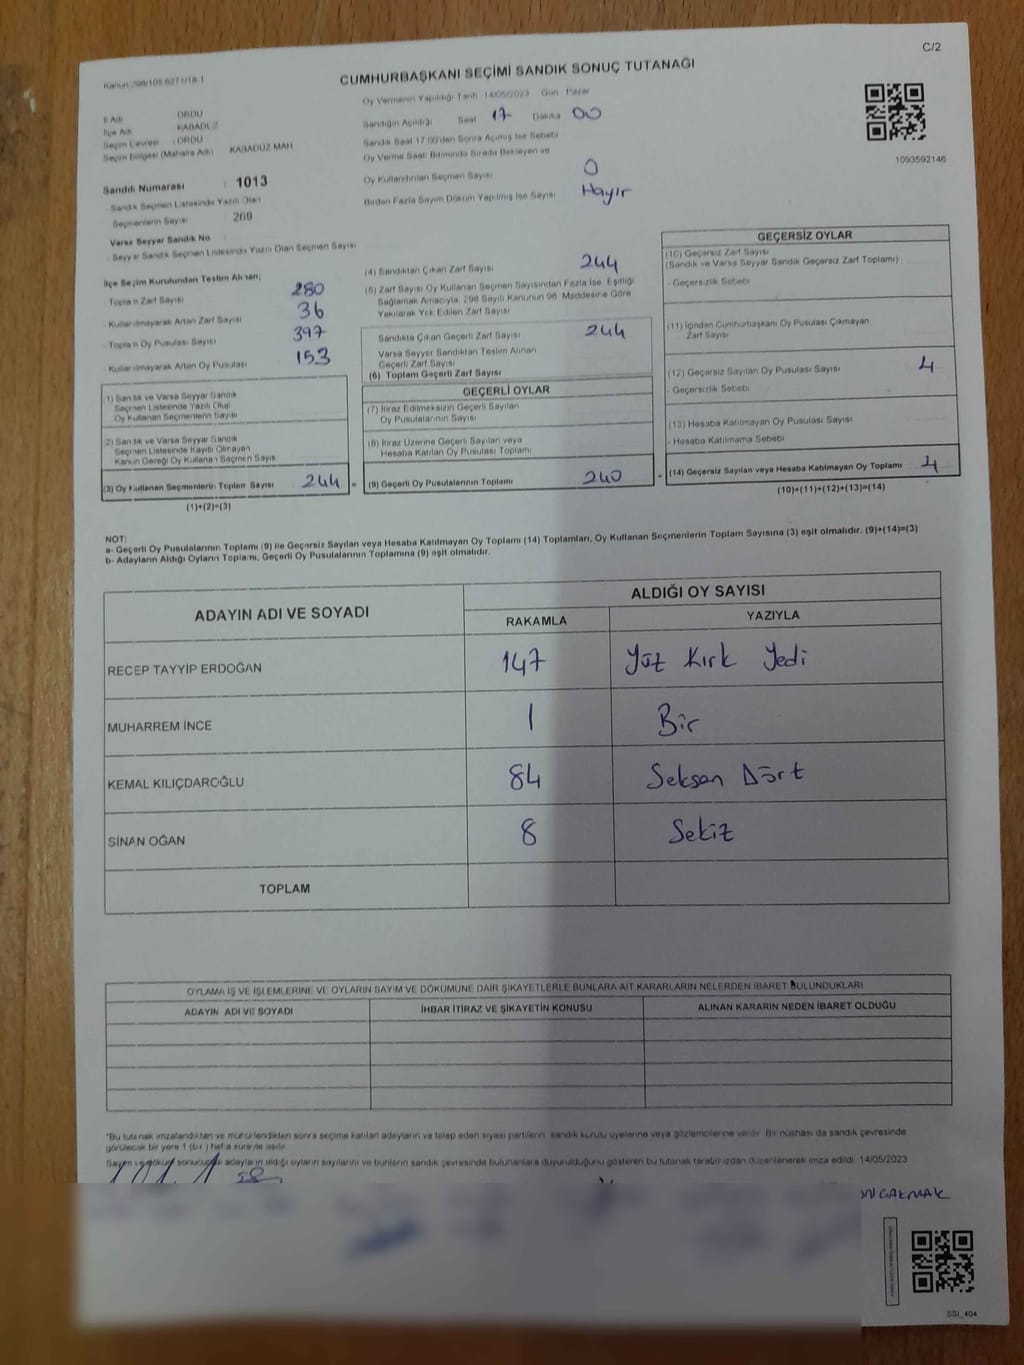 C/2
Kanun:298/105.6271/18-1
CUMHURBAŞKANI SEÇİMİ SANDIK SONUÇ TUTANAĞI
Oy Vermenin Yapıldığı Tarih 14/05/2023 Gün : Pazar
İl Adı : ORDU
İlçe Adı : KABADÜZ
Seçim Çevresi : ORDU
Seçim Bölgesi (Mahalle Adı) : KABADÜZ MAH
Sandığın Açıldığı Saat 17 Dakika 00
Sandık Saat 17:00'den Sonra Açılmış İse Sebebi
Oy Verme Saati Bitiminde Sırada Bekleyen ve
Oy Kullandırılan Seçmen Sayısı 0
Birden Fazla Sayım Döküm Yapılmış İse Sayısı Hayır
1093592146
Sandık Numarası : 1013
- Sandık Seçmen Listesinde Yazılı Olan
Seçmenlerin Sayısı 269
Varsa Seyyar Sandık No
- Seyyar Sandık Seçmen Listesinde Yazılı Olan Seçmen Sayısı
İlçe Seçim Kurulundan Teslim Alınan;
- Toplam Zarf Sayısı 280
- Kullanılmayarak Artan Zarf Sayısı 36
- Toplam Oy Pusulası Sayısı 397
- Kullanılmayarak Artan Oy Pusulası 153
(1) Sandık ve Varsa Seyyar Sandık
Seçmen Listesinde Yazılı Olup
Oy Kullanan Seçmenlerin Sayısı
(2) Sandık ve Varsa Seyyar Sandık
Seçmen Listesinde Kayıtlı Olmayan
Kanun Gereği Oy Kullanan Seçmen Sayısı
(3) Oy Kullanan Seçmenlerin Toplam Sayısı 244 =
(1)+(2)=(3)
(4) Sandıktan Çıkan Zarf Sayısı 244
(5) Zarf Sayısı Oy Kullanan Seçmen Sayısından Fazla İse, Eşitliği
Sağlamak Amacıyla, 298 Sayılı Kanunun 98. Maddesine Göre
Yakılarak Yok Edilen Zarf Sayısı
Sandıkta Çıkan Geçerli Zarf Sayısı 244
Varsa Seyyar Sandıktan Teslim Alınan
Geçerli Zarf Sayısı
(6) Toplam Geçerli Zarf Sayısı
GEÇERLİ OYLAR
(7) İtiraz Edilmeksizin Geçerli Sayılan
Oy Pusulalarının Sayısı
(8) İtiraz Üzerine Geçerli Sayılan veya
Hesaba Katılan Oy Pusulası Toplamı
(9) Geçerli Oy Pusulalarının Toplamı 240 +
GEÇERSİZ OYLAR
(10) Geçersiz Zarf Sayısı
(Sandık ve Varsa Seyyar Sandık Geçersiz Zarf Toplamı)
- Geçersizlik Sebebi
(11) İçinden Cumhurbaşkanı Oy Pusulası Çıkmayan
Zarf Sayısı
(12) Geçersiz Sayılan Oy Pusulası Sayısı 4
- Geçersizlik Sebebi
(13) Hesaba Katılmayan Oy Pusulası Sayısı
- Hesaba Katılmama Sebebi
(14) Geçersiz Sayılan veya Hesaba Katılmayan Oy Toplamı 4
(10)+(11)+(12)+(13)=(14)
NOT:
a- Geçerli Oy Pusulalarının Toplamı (9) ile Geçersiz Sayılan veya Hesaba Katılmayan Oy Toplamı (14) Toplamları, Oy Kullanan Seçmenlerin Toplam Sayısına (3) eşit olmalıdır. (9)+(14)=(3)
b- Adayların Aldığı Oyların Toplamı, Geçerli Oy Pusulalarının Toplamına (9) eşit olmalıdır.
ADAYIN ADI VE SOYADI ALDIĞI OY SAYISI
RAKAMLA YAZIYLA
RECEP TAYYİP ERDOĞAN 147 Yüz Kırk Yedi
MUHARREM İNCE 1 Bir
KEMAL KILIÇDAROĞLU 84 Seksen Dört
SİNAN OĞAN 8 Sekiz
TOPLAM
OYLAMA İŞ VE İŞLEMLERİNE VE OYLARIN SAYIM VE DÖKÜMÜNE DAİR ŞİKAYETLERLE BUNLARA AİT KARARLARIN NELERDEN İBARET BULUNDUKLARI
ADAYIN ADI VE SOYADI İHBAR İTİRAZ VE ŞİKAYETİN KONUSU ALINAN KARARIN NEDEN İBARET OLDUĞU
*Bu tutanak imzalandıktan ve mühürlendikten sonra seçime katılan adayların ve talep eden siyasi partilerin sandık kurulu üyelerine veya gözlemcilerine verilir. Bir nüshası da sandık çevresinde
görülecek bir yere 1 (bir) hafta süreyle asılır.
Sayım ve döküm sonucunda adayların aldığı oyların sayılarını ve bunların sandık çevresinde bulunanlara duyurulduğunu gösteren bu tutanak tarafımızdan düzenlenerek imza edildi. 14/05/2023
SSI_404